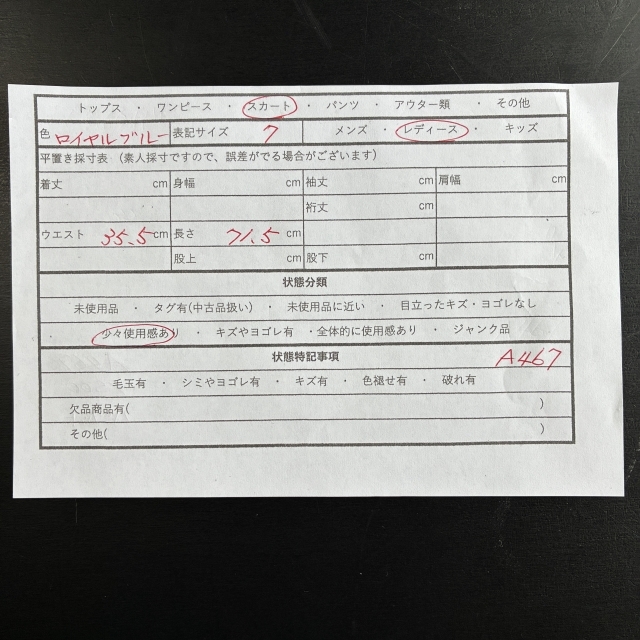 トップス ・ ワンピース ・ スカート ・ パンツ ・ アウター類 ・ その他
色 ロイヤルブルー 表記サイズ 7 メンズ ・ レディース ・ キッズ
平置き採寸表 (素人採寸ですので、誤差がでる場合がございます)
着丈 cm 身幅 cm 袖丈 cm 肩幅 cm
裄丈 cm
ウエスト 35.5cm 長さ 71.5 cm
股上 cm 股下 cm
状態分類
未使用品 ・ タグ有(中古品扱い) ・ 未使用品に近い ・ 目立ったキズ・ヨゴレなし
少々使用感あり ・ キズやヨゴレ有 ・全体的に使用感あり ・ ジャンク品
状態特記事項 A467
毛玉有 ・ シミやヨゴレ有 ・ キズ有 ・ 色褪せ有 ・ 破れ有
欠品商品有( )
その他( )